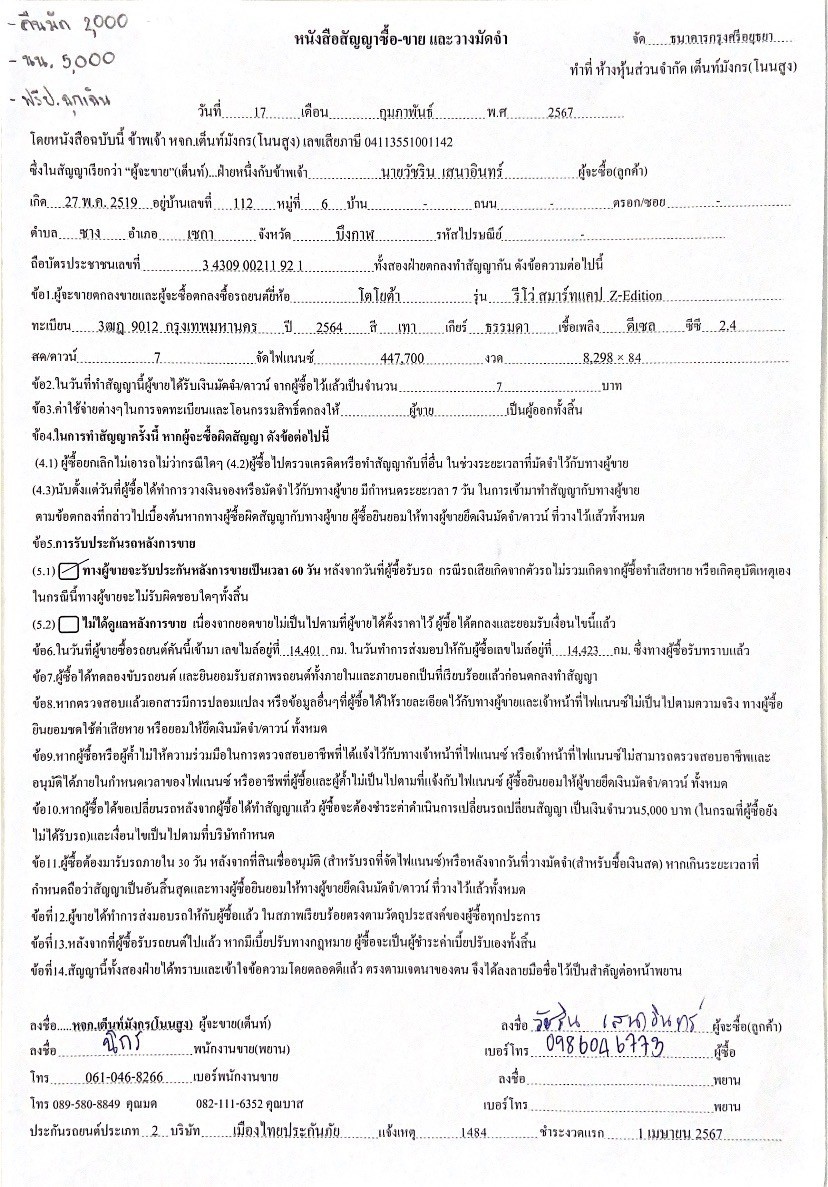 - คืนมัด 2,000
- นน. 5,000
- ฟรีป.ฉุกเฉิน
หนังสือสัญญาซื้อ-ขาย และวางมัดจำ
จัด ธนาคารกรุงศรีอยุธยา
ทำที่ ห้างหุ้นส่วนจำกัด เต็นท์มังกร(โนนสูง)
วันที่ 17 เดือน กุมภาพันธ์ พ.ศ 2567
โดยหนังสือฉบับนี้ ข้าพเจ้า หจก.เต็นท์มังกร(โนนสูง) เลขเสียภาษี 04113551001142
ซึ่งในสัญญาเรียกว่า "ผู้จะขาย"(เต็นท์)...ฝ่ายหนึ่งกับข้าพเจ้า นายวัชริน เสนาอินทร์ ผู้จะซื้อ(ลูกค้า)
เกิด 27 พ.ค. 2519 อยู่บ้านเลขที่ 112 หมู่ที่ 6 บ้าน - ถนน - ตรอก/ซอย -
ตำบล ซาง อำเภอ เซกา จังหวัด บึงกาฬ รหัสไปรษณีย์ -
ถือบัตรประชาชนเลขที่ 3 4309 00211 92 1 ทั้งสองฝ่ายตกลงทำสัญญากัน ดังข้อความต่อไปนี้
ข้อ1.ผู้จะขายตกลงขายและผู้จะซื้อตกลงซื้อรถยนต์ยี่ห้อ โตโยต้า รุ่น รีโว่ สมาร์ทแคป Z-Edition
ทะเบียน 3ฒฎ 9012 กรุงเทพมหานคร ปี 2564 สี เทา เกียร์ ธรรมดา เชื้อเพลิง ดีเซล ซีซี 2.4
สด/ดาวน์ 7 จัดไฟแนนซ์ 447,700 งวด 8,298 × 84
ข้อ2.ในวันที่ทำสัญญานี้ผู้ขายได้รับเงินมัดจำ/ดาวน์ จากผู้ซื้อไว้แล้วเป็นจำนวน 7 บาท
ข้อ3.ค่าใช้จ่ายต่างๆในการจดทะเบียนและโอนกรรมสิทธิ์ตกลงให้ ผู้ขาย เป็นผู้ออกทั้งสิ้น
ข้อ4.ในการทำสัญญาครั้งนี้ หากผู้จะซื้อผิดสัญญา ดังข้อต่อไปนี้
(4.1) ผู้ซื้อยกเลิกไม่เอารถไม่ว่ากรณีใดๆ (4.2)ผู้ซื้อไปตรวจเครดิตหรือทำสัญญากับที่อื่น ในช่วงระยะเวลาที่มัดจำไว้กับทางผู้ขาย
(4.3)นับตั้งแต่วันที่ผู้ซื้อได้ทำการวางเงินจองหรือมัดจำไว้กับทางผู้ขาย มีกำหนดระยะเวลา 7 วัน ในการเข้ามาทำสัญญากับทางผู้ขาย
ตามข้อตกลงที่กล่าวไปเบื้องต้นหากทางผู้ซื้อผิดสัญญากับทางผู้ขาย ผู้ซื้อยินยอมให้ทางผู้ขายยึดเงินมัดจำ/ดาวน์ ที่วางไว้แล้วทั้งหมด
ข้อ5.การรับประกันรถหลังการขาย
(5.1) ทางผู้ขายจะรับประกันหลังการขายเป็นเวลา 60 วัน หลังจากวันที่ผู้ซื้อรับรถ กรณีรถเสียเกิดจากตัวรถไม่รวมเกิดจากผู้ซื้อทำเสียหาย หรือเกิดอุบัติเหตุเอง
ในกรณีนี้ทางผู้ขายจะไม่รับผิดชอบใดๆทั้งสิ้น
(5.2) ไม่ได้ดูแลหลังการขาย เนื่องจากยอดขายไม่เป็นไปตามที่ผู้ขายได้ตั้งราคาไว้ ผู้ซื้อได้ตกลงและยอมรับเงื่อนไขนี้แล้ว
ข้อ6.ในวันที่ผู้ขายซื้อรถยนต์คันนี้เข้ามา เลขไมล์อยู่ที่ 14,401 กม. ในวันทำการส่งมอบให้กับผู้ซื้อเลขไมล์อยู่ที่ 14,423 กม. ซึ่งทางผู้ซื้อรับทราบแล้ว
ข้อ7.ผู้ซื้อได้ทดลองขับรถยนต์ และยินยอมรับสภาพรถยนต์ทั้งภายในและภายนอกเป็นที่เรียบร้อยแล้วก่อนตกลงทำสัญญา
ข้อ8.หากตรวจสอบแล้วเอกสารมีการปลอมแปลง หรือข้อมูลอื่นๆที่ผู้ซื้อได้ให้รายละเอียดไว้กับทางผู้ขายและเจ้าหน้าที่ไฟแนนซ์ไม่เป็นไปตามความจริง ทางผู้ซื้อ
ยินยอมชดใช้ค่าเสียหาย หรือยอมให้ยึดเงินมัดจำ/ดาวน์ ทั้งหมด
ข้อ9.หากผู้ซื้อหรือผู้ค้ำไม่ให้ความร่วมมือในการตรวจสอบอาชีพที่ได้แจ้งไว้กับทางเจ้าหน้าที่ไฟแนนซ์ หรือเจ้าหน้าที่ไฟแนนซ์ไม่สามารถตรวจสอบอาชีพและ
อนุมัติได้ภายในกำหนดเวลาของไฟแนนซ์ หรืออาชีพที่ผู้ซื้อและผู้ค้ำไม่เป็นไปตามที่แจ้งกับไฟแนนซ์ ผู้ซื้อยินยอมให้ผู้ขายยึดเงินมัดจำ/ดาวน์ ทั้งหมด
ข้อ10.หากผู้ซื้อได้ขอเปลี่ยนรถหลังจากผู้ซื้อได้ทำสัญญาแล้ว ผู้ซื้อจะต้องชำระค่าดำเนินการเปลี่ยนรถเปลี่ยนสัญญา เป็นเงินจำนวน5,000 บาท (ในกรณที่ผู้ซื้อยัง
ไม่ได้รับรถ)และเงื่อนไขเป็นไปตามที่บริษัทกำหนด
ข้อ11.ผู้ซื้อต้องมารับรถภายใน 30 วัน หลังจากที่สินเชื่ออนุมัติ (สำหรับรถที่จัดไฟแนนซ์)หรือหลังจากวันที่วางมัดจำ(สำหรับซื้อเงินสด) หากเกินระยะเวลาที่
กำหนดถือว่าสัญญาเป็นอันสิ้นสุดและทางผู้ซื้อยินยอมให้ทางผู้ขายยึดเงินมัดจำ/ดาวน์ ที่วางไว้แล้วทั้งหมด
ข้อที่12.ผู้ขายได้ทำการส่งมอบรถให้กับผู้ซื้อแล้ว ในสภาพเรียบร้อยตรงตามวัตถุประสงค์ของผู้ซื้อทุกประการ
ข้อที่13.หลังจากที่ผู้ซื้อรับรถยนต์ไปแล้ว หากมีเบี้ยปรับทางกฎหมาย ผู้ซื้อจะเป็นผู้ชำระค่าเบี้ยปรับเองทั้งสิ้น
ข้อที่14.สัญญานี้ทั้งสองฝ่ายได้ทราบและเข้าใจข้อความโดยตลอดดีแล้ว ตรงตามเจตนาของตน จึงได้ลงลายมือชื่อไว้เป็นสำคัญต่อหน้าพยาน
ลงชื่อ.....หจก.เต็นท์มังกร(โนนสูง) ผู้จะขาย(เต็นท์) ลงชื่อ วัชริน เสนาอินทร์ ผู้จะซื้อ(ลูกค้า)
ลงชื่อ นิกร พนักงานขาย(พยาน) เบอร์โทร 0986046773 ผู้ซื้อ
โทร 061-046-8266 เบอร์พนักงานขาย ลงชื่อ พยาน
โทร 089-580-8849 คุณมด 082-111-6352 คุณบาส เบอร์โทร พยาน
ประกันรถยนต์ประเภท 2 บริษัท เมืองไทยประกันภัย แจ้งเหตุ 1484 ชำระงวดแรก 1 เมษายน 2567